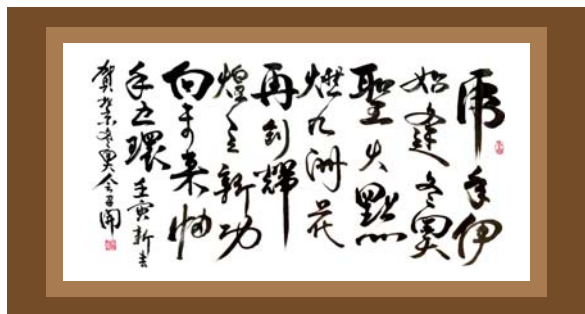 虎年伊
始逢冬奥
聖火點
燃九洲花
再創輝
煌立新功
向未来
手五環
壬寅新春
賀北京冬奥会召開